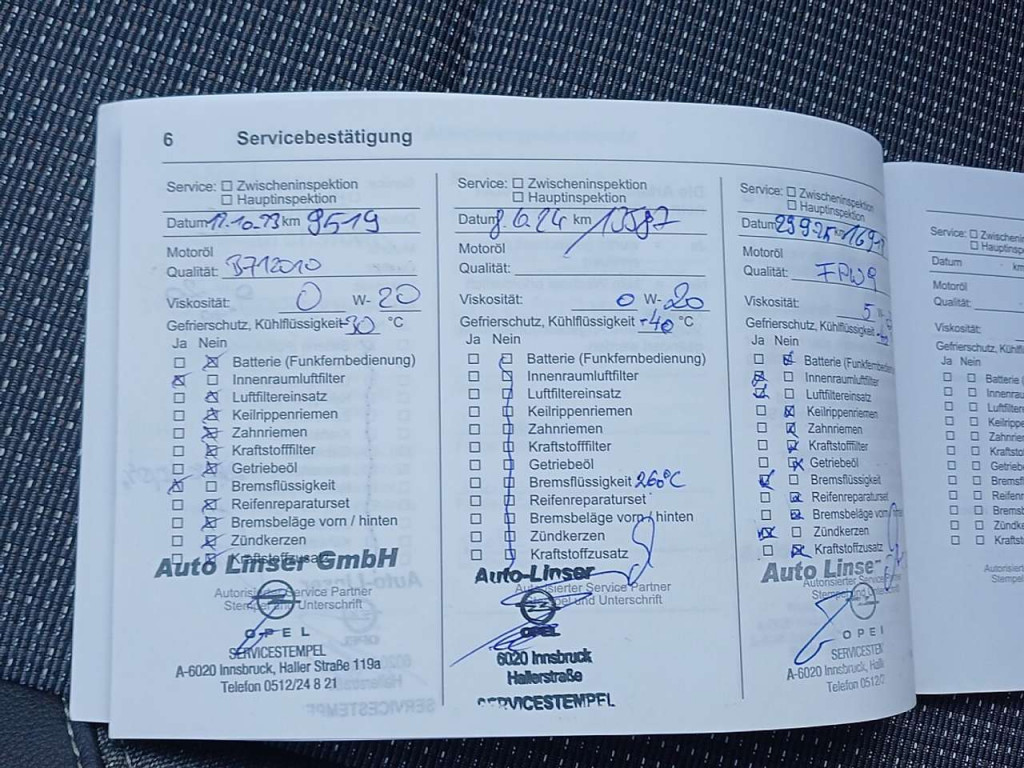 6 Servicebestätigung
Service: ☐ Zwischeninspektion
☐ Hauptinspektion
Datum 17.10.23 km 9519
Motoröl
Qualität: B712010
Viskosität: 0 W- 20
Gefrierschutz, Kühlflüssigkeit -30 °C
Ja Nein
☐ ☒ Batterie (Funkfernbedienung)
☒ ☐ Innenraumluftfilter
☐ ☒ Luftfiltereinsatz
☐ ☒ Keilrippenriemen
☐ ☒ Zahnriemen
☐ ☒ Kraftstofffilter
☐ ☒ Getriebeöl
☒ ☐ Bremsflüssigkeit
☐ ☒ Reifenreparaturset
☐ ☒ Bremsbeläge vorn / hinten
☐ ☒ Zündkerzen
☐ ☒ Kraftstoffzusatz
Auto Linser GmbH
Autorisierter Service Partner
Stempel und Unterschrift
OPEL
SERVICESTEMPEL
A-6020 Innsbruck, Haller Straße 119a
Telefon 0512/24 8 21
Service: ☐ Zwischeninspektion
☐ Hauptinspektion
Datum 8.10.24 km
Motoröl
Qualität:
Viskosität: 0 W- 20
Gefrierschutz, Kühlflüssigkeit -40 °C
Ja Nein
☐ ☐ Batterie (Funkfernbedienung)
☐ ☐ Innenraumluftfilter
☐ ☐ Luftfiltereinsatz
☐ ☐ Keilrippenriemen
☐ ☐ Zahnriemen
☐ ☐ Kraftstofffilter
☐ ☐ Getriebeöl
☐ ☐ Bremsflüssigkeit 260°C
☐ ☐ Reifenreparaturset
☐ ☐ Bremsbeläge vorn / hinten
☐ ☐ Zündkerzen
☐ ☐ Kraftstoffzusatz
Auto-Linser
Autorisierter Service Partner
Stempel und Unterschrift
OPEL
6020 Innsbruck
Hallerstraße
SERVICESTEMPEL
Service: ☐ Zwischeninspektion
☐ Hauptinspektion
Datum 29.9.25
Motoröl
Qualität: FPW9
Viskosität: 5 W-
Gefrierschutz, Kühlflüssigkeit -40
Ja Nein
☐ ☒ Batterie (Funkfernbedie
☒ ☐ Innenraumluftfilter
☒ ☐ Luftfiltereinsatz
☐ ☒ Keilrippenriemen
☐ ☒ Zahnriemen
☐ ☒ Kraftstofffilter
☐ ☒ Getriebeöl
☒ ☐ Bremsflüssigkeit
☐ ☒ Reifenreparaturset
☐ ☒ Bremsbeläge vorn
☒ ☐ Zündkerzen
☐ ☒ Kraftstoffzusatz
Auto Linse
Autorisierter Service
Stempel und
OPEL
SERVICESTE
A-6020 Innsbruck, Hall
Telefon 0512/
Service: ☐ Zwischenins
☐ Hauptinsp
Datum km
Motoröl
Qualität:
Viskosität:
Gefrierschutz, Kühlfl
Ja Nein
☐ ☐ Batterie
☐ ☐ Innenrau
☐ ☐ Luftfilter
☐ ☐ Keilripp
☐ ☐ Zahnrie
☐ ☐ Kraftsto
☐ ☐ Getriebe
☐ ☐ Bremsfl
☐ ☐ Reifenr
☐ ☐ Bremsb
☐ ☐ Zündke
☐ ☐ Kraftst
Autorisier
Stempel